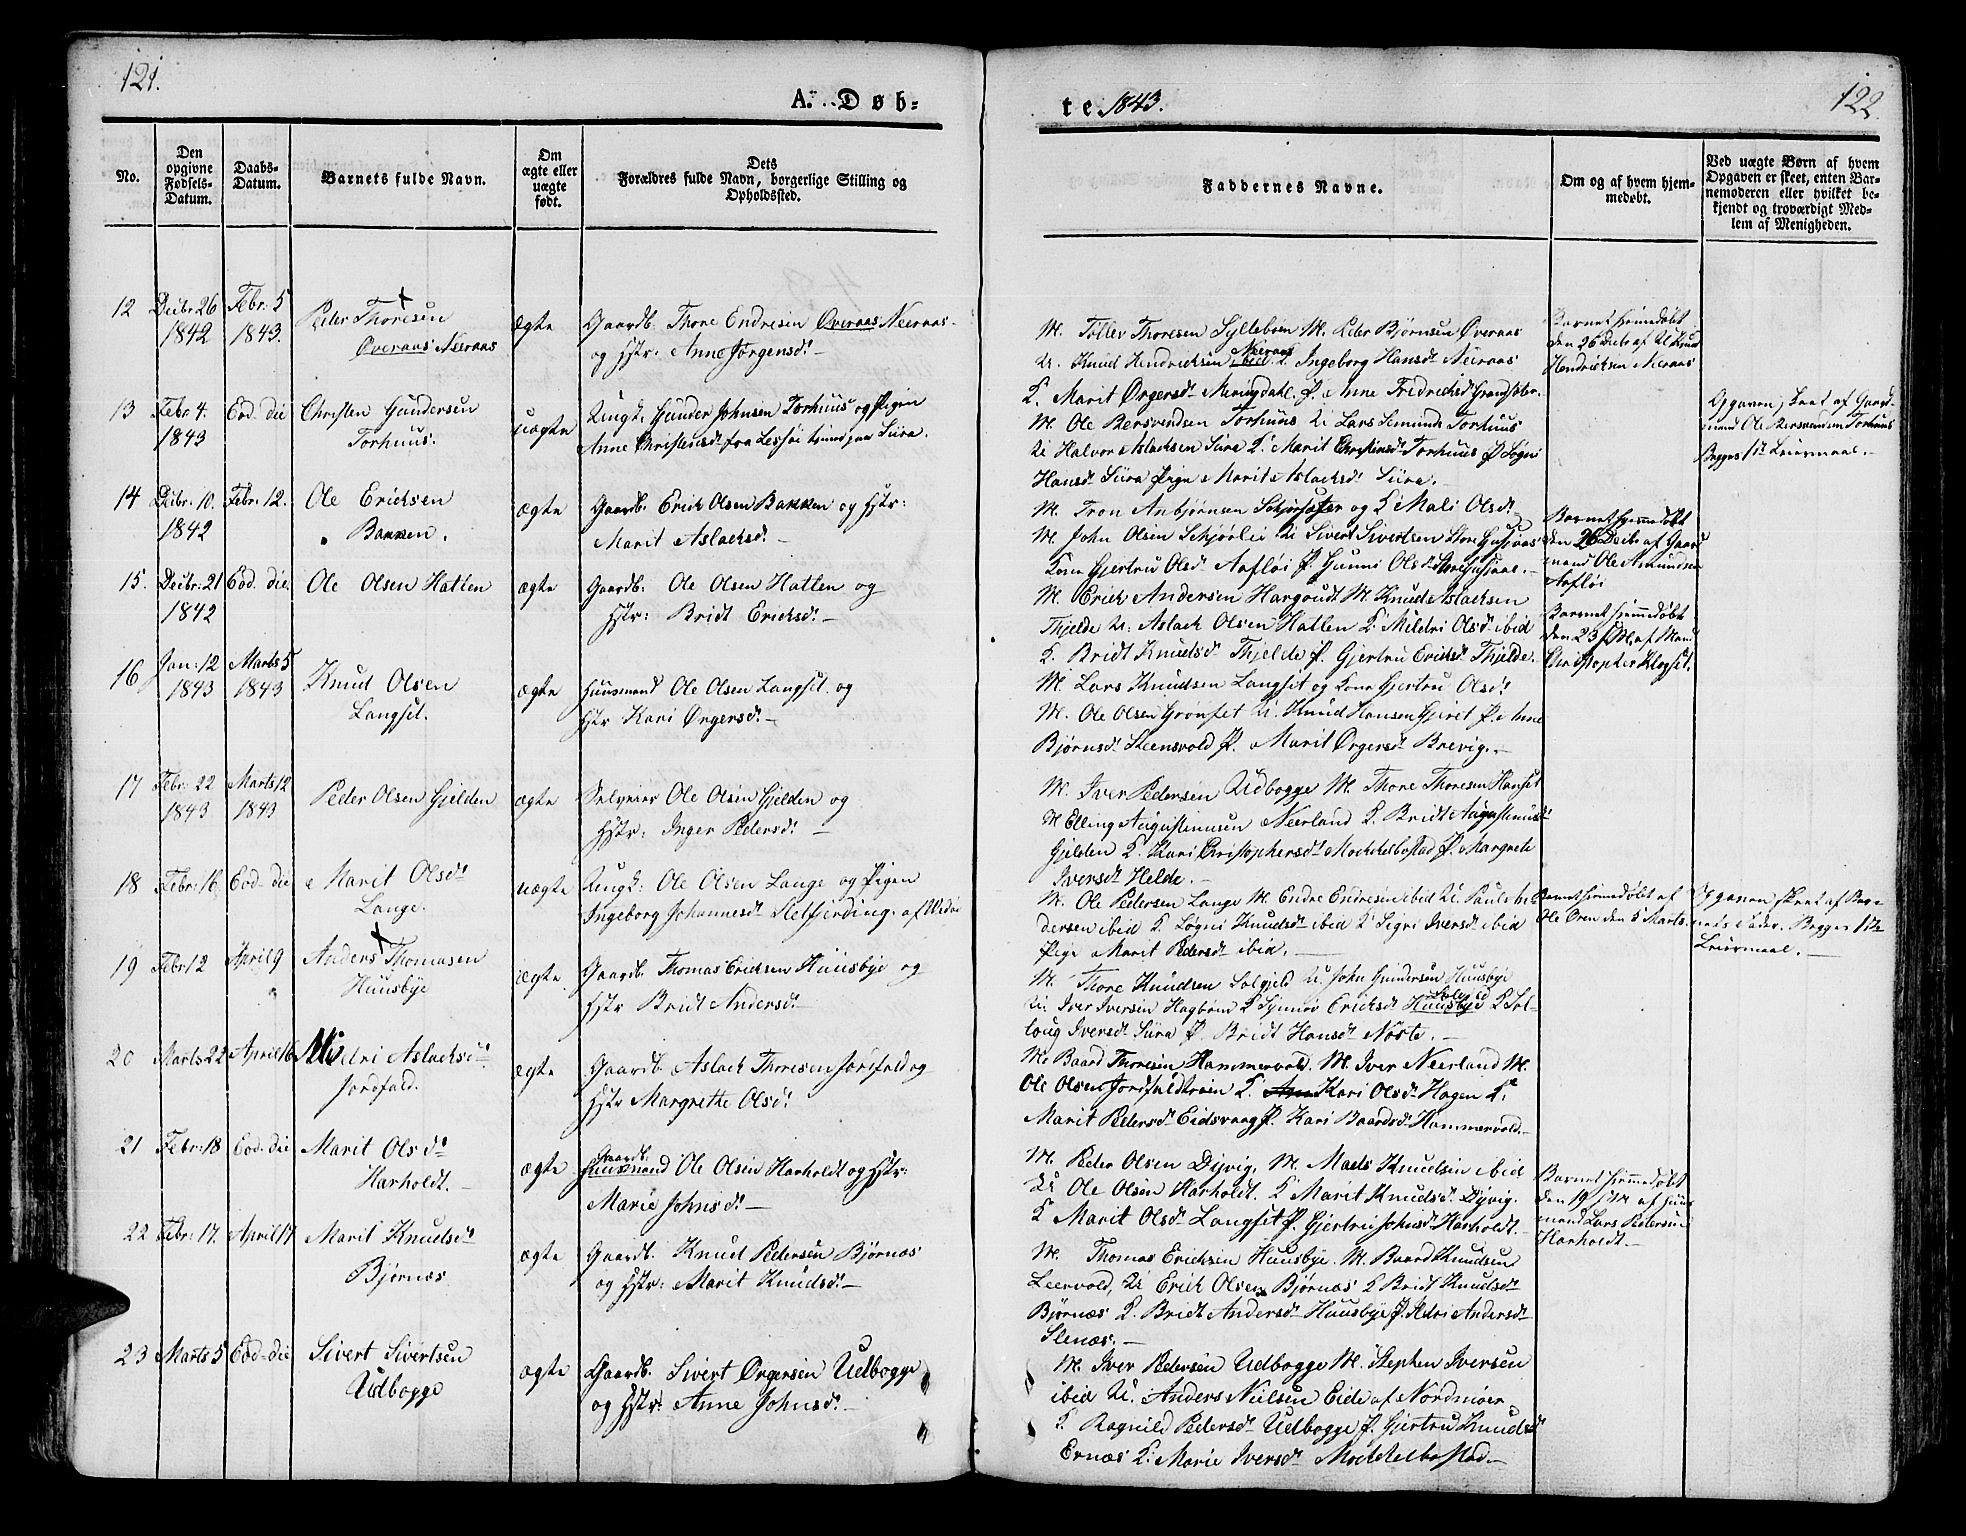 121.
122.
A. Døb-
te 1843.
No.
Den opgivne Fødsels-Datum.
Daabs-Datum.
Barnets fulde Navn.
Om ægte eller uægte født.
Dets Forældres fulde Navn, borgerlige Stilling og Opholdssted.
Faddernes Navne.
Om og af hvem hjem-medøbt.
Ved uægte Børn af hvem Opgaven er skeet, enten Bar-nemoderen eller hvilket be-kjendt og troværdigt Med-lem af Menigheden.
12 Decbr: 26 Febr: 5 Peder Thoresen
1842 1843. Overaas Neeraas
ægte Gaardb. Thore Endresen Overaas Neeraas
og Hstr: Anne Jørgensd:
M. Peder Bjørnsen Overaas
U. Knud Hendricksen ibid Neeraas K. Ingeborg Hansd: Neeraas
K. Marit Ørgersd:
Barnet hjemmedøbt
den 26 Decbr af U. Knud
Hendricksen Neeraas
13 Febr 4. Eod. die Christen Gundersen
1843 Torhuus.
uægte Ungk: Gunder Johnsen Torhuus og Pigen
Anne Christensd: fra Lessøe
M. Ole Bersvendsen Torhuus U. Lars Torhuus
U: Halvor Aslacksen Siira K. Marit Christensd: Torhuus P. Søgni
Hansd: Siira Pige Marit Aslacksd: Siira.
Opgaven skeet af Gaard-
mand Ole Bersvendsen Torhuus
Begges 1ste Leiermaal.
14 Decbr. 10. Febr. 12. Ole Ericksen
1842 Bakken.
ægte Gaardb. Erick Olsen Bakken og Hstr:
Marit Aslacksd:
M. Tron Anbjørnsen og K. Mali Olsd:
M. John Olsen Schjørlie U. Sivert Sivertsen
Kone Gjertru Olsd: Aafløi P. Gunni Olsd:
Barnet hjemmedøbt
den 26 Decbr af Gaard
mand Ole Amundsen
Aafløi
15. Decbr: 21 Eod. die Ole Olsen Hatlen
1842
ægte Gaardb: Ole Olsen Hatlen og
Hstr: Bridt Ericksd:
M. Erick Andersen Hargoudt M. Knud Aslacksen
Thjelde U: Aslack Olsen Hatlen K. Mildri Olsd: ibid
K. Bridt Knudsd: Thjelde P. Gjertru Ericksd: Thjelde.
Barnet hjemmedøbt
den 23
Christopher
16 Jan: 12 Marts 5 Knud Olsen
1843 1843 Langset.
ægte Huusmand Ole Olsen Langset og
Hstr Kari Ørgersd:
M. Lars Knudsen Langset og Kone Gjertru Olsd:
M. Ole Olsen Grønset U. Knud Hansen P. Anne
Bjørnsd: Steensvold P. Marit Ørgersd: Brevig.
17 Febr: 22 Marts 12 Peder Olsen Gjelden
1843 1843
ægte Selveier Ole Olsen Gjelden og
Hstr: Inger Pedersd:
M. Iver Pedersen Udbogge M. Thore Thoresen
M Elling Augustinusen Neerland K. Bridt Augustinusd:
Gjelden K. Kari Christophersd: Mockelbostad P. Margrete
Iversd: Helde.
18 Febr: 16 Eod. die Marit Olsd:
Lange.
uægte Ungk: Ole Olsen Lange og Pigen
Ingeborg Johannesd: af Wedøe
M. Ole Pedersen Lange M. Endre Endresen ibid U. Paul
dersen ibid K. Søgni Knudsd: ibid K. Sigri Iversd: ibid
Pige Marit Pedersd: ibid.
Barnet hjemmedøbt af
Ole Oren den 5 Marts.
Opgaven skeet af Bar-
nets Fader. Begges 1ste
Leiermaal.
19 Febr 12 April 9 Anders Thomasen
Huusbye
ægte Gaardb: Thomas Ericksen Huusbye og
Hstr Bridt Andersd:
M. Thore Knudsen Solgjeld U. John Gundersen Huusbye
U. Iver Iversen Hagbøen K. Synnøv Ericksd: Huusbye
Iversd: Siira P. Bridt Hansd: Nøste.
20 Marts 22 April 16 Mildri Aslacksd:
Jordfald.
ægte Gaardb. Aslack Thoresen Jordfald og
Hstr Margrethe Olsd:
M. Baard Thoresen Hammervold. M. Iver Neerland M.
Ole Olsen K. Kari Olsd: Hagen K.
Marit Pedersd: Eidsvaag P. Kari Baardsd: Hammervold.
21 Febr: 18 Eod. die Marit Olsd:
Harholdt.
ægte Gaardb. Huusmand Ole Olsen Harholdt og Hstr:
Marie Johnsd:
M. Peder Olsen Dyvig. M. Mads Knudsen ibid
U. Ole Olsen Harholdt. K. Marit Knudsd: Dyvig.
K. Marit Olsd: Langset P. Gjertru Johnsd: Harholdt.
Barnet hjemmedøbt
den 19 af Huus
mand Lars Pedersen
Harholdt.
22 Febr: 17. April 17 Marit Knudsd:
Bjørnæs
ægte Gaardb: Knud Pedersen Bjørnæs
og Hstr: Marit Knudsd:
M. Thomas Ericksen Huusbye. M. Baard Knudsen
Leervold, U. Erick Olsen Bjørnæs K. Bridt Knudsd:
Bjørnæs K. Bridt Andersd: Huusbye P. Andersd:
Stenæs.
23 Marts 5 Eod. die Sivert Sivertsen
Udbogge
ægte Gaardb. Sivert Ørgersen Udbogge
og Hstr: Anne Johnsd:
M. Iver Pedersen Udbogge M. Stephen Iversen
ibid U. Anders Nielsen Eide af Nordmøer
K. Ragnild Pedersd: Udbogge P. Gjertru Knudsd:
Ernæs K. Marie Iversd: Mockelbostad.